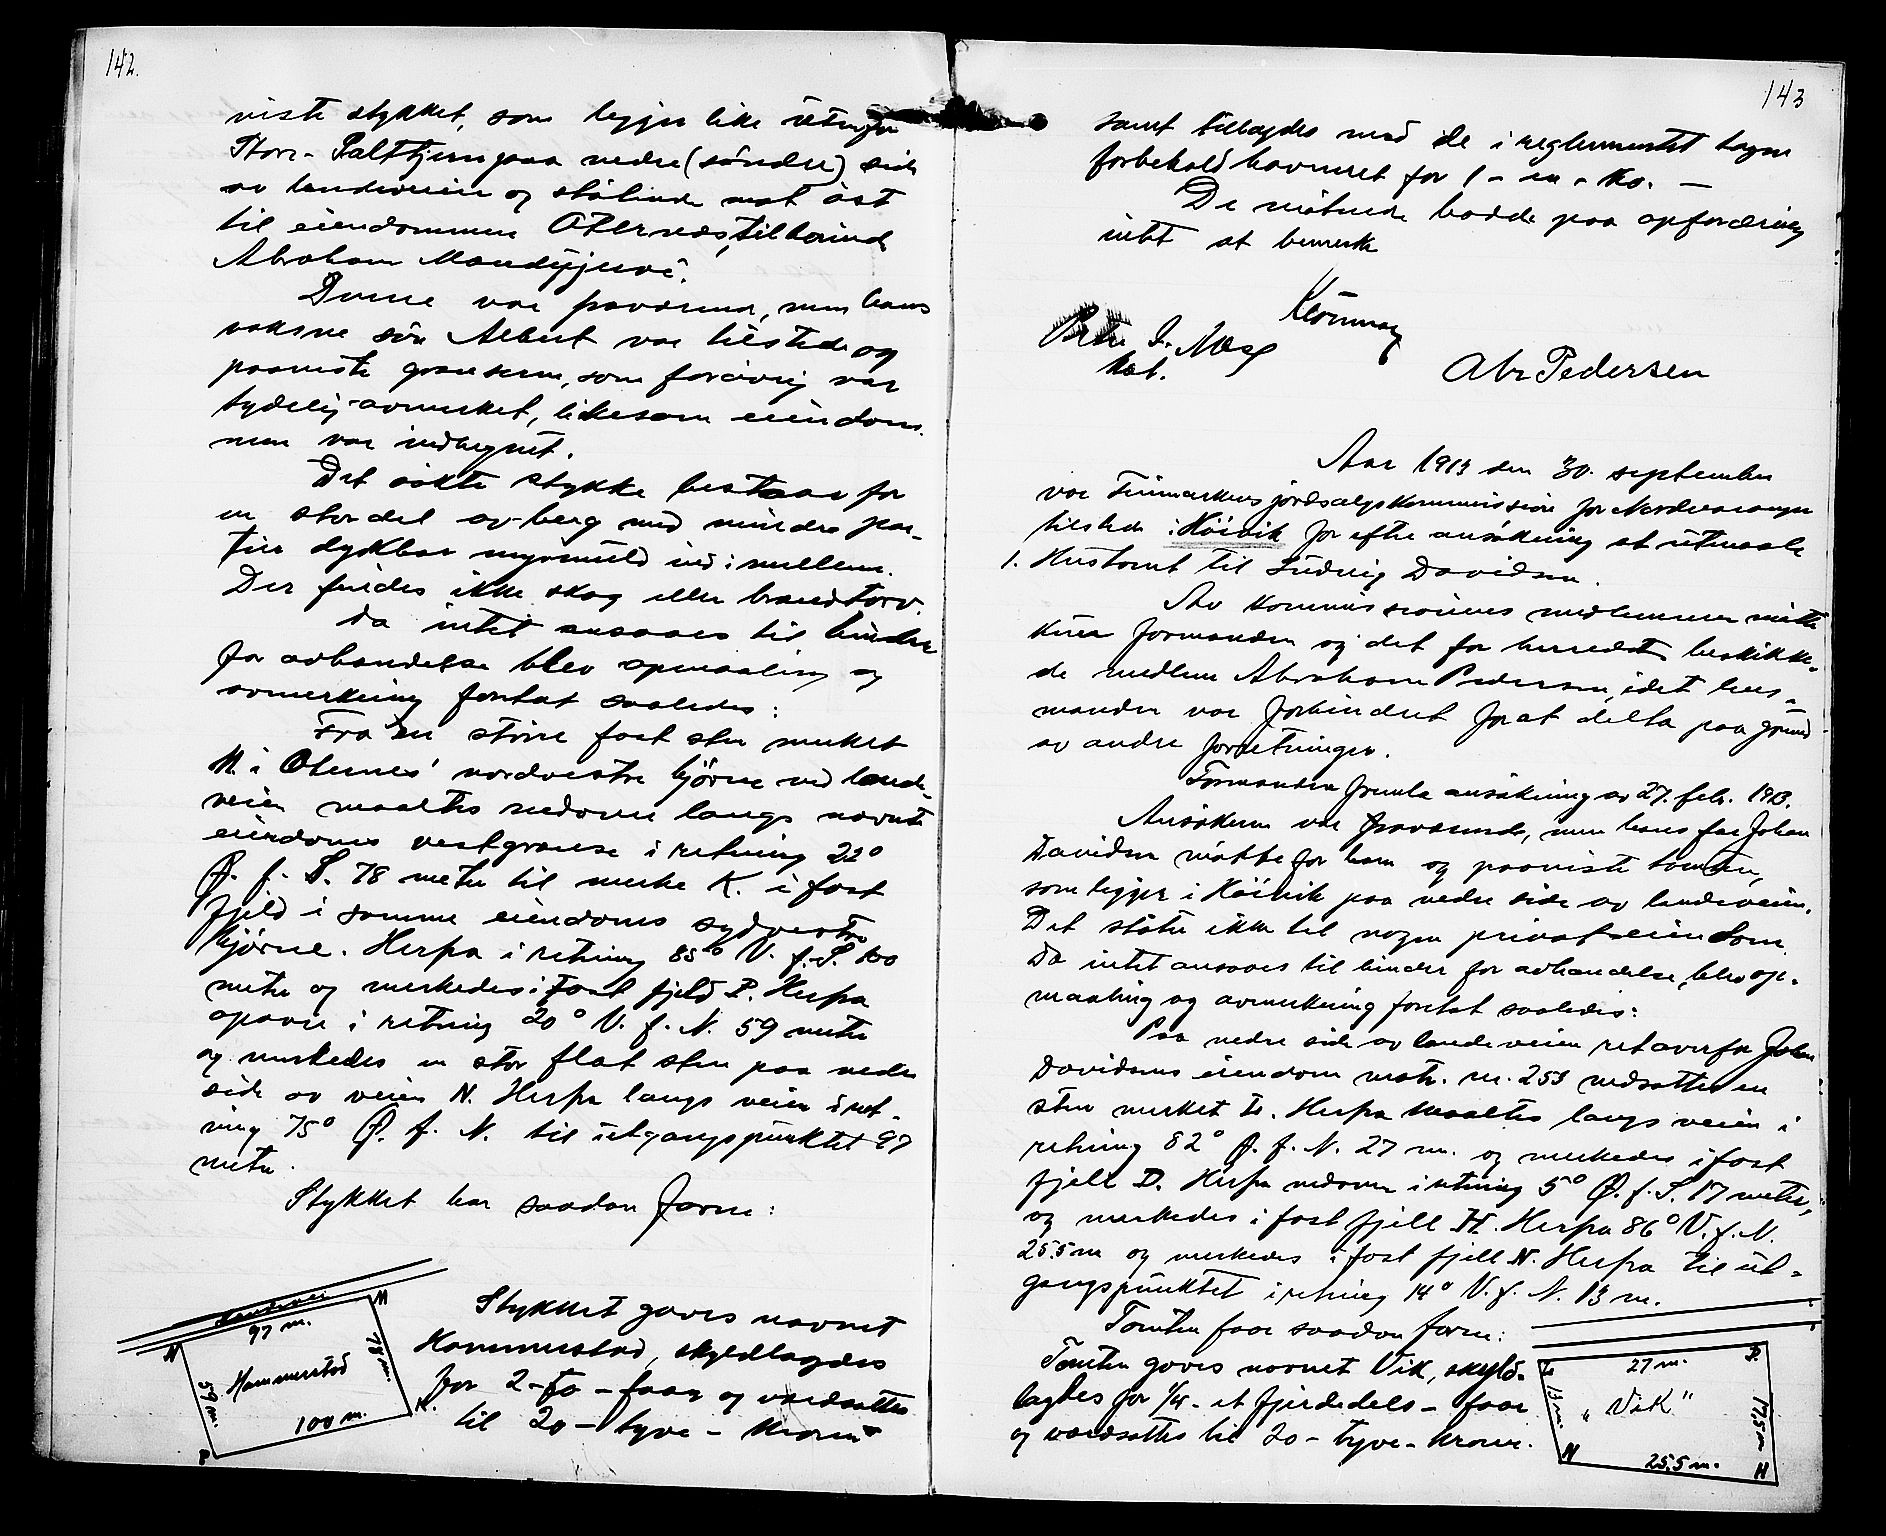 142.
viste stykket, som ligger like utenfor
Store-Palttjern paa nedre (søndre) side
av landeveien og stötende mot öst
til eiendommen Oternes, tilhørende
Abraham Mandyjervi.
Denne var fraværende, men hans
voksne sön Albert var tilstede og
paaviste grænserne, som forövrig var
tydelig avmerket, likesom eiendom-
men var indhegnet.
Det sökte stykke bestaar for
en stor del av berg med mindre par-
tier dyrkbar myrmuld ind imellem.
Der findes ikke skog eller brandtorv.
Da intet ansaaes til hinder
for avhændelse blev opmaaling og
avmerkning foretat saaledes:
Fra en störe fast sten merket
M. i Oternes' nordvestre hjørne ved lande-
veien maaltes nedover langs nævnte
eiendoms vestgrænse i retning 22°
Ø. f. S. 78 meter til merke K. i fast
fjeld i samme eiendoms sydvestre
hjørne. Herfra i retning 85° V. f. S. 100
meter og merkedes i fast fjeld P. Herfra
opover i retning 20° V. f. N. 59 meter
og merkedes en stor flat sten paa nedre
side av veien N. Herfra langs veien i ret-
ning 75° Ø. f. N. til utgangspunktet 97
meter.
Stykket har saadan form:
Landevei
97 m.
M
N
78 m.
59 m.
Hammerstad
100 m.
K.
P
Stykket gaves navnet
Hammerstad, skyldlagdes
for 2-to-øre og værdsattes
til 20-tyve-kroner
143
samt tillagdes med de i reglementet tagne
forbehold havneret for 1-en-ko. —
De mötende hadde paa opfordring
intet at bemerke
Abr Pedersen
Aar 1913 den 30. september
var Finmarkens jordsalgskommission for Nordvaranger
tilstede i Höivik for efter ansökning at utmaale
1. Hustomt til Ludvig Davidsen.
Av kommissionens medlemmer mötte
kun formanden og det for herredet beskikke-
de medlem Abraham Pedersen, idet lens-
manden var forhindret for at delta paa grund
av andre forretninger.
Formanden fremla ansökning av 27. febr. 1913.
Ansökeren var fraværende, men hans far Johan
Davidsen mötte for ham og paaviste tomten,
som ligger i Höivik paa nedre side av landeveien.
Det stöter ikke til nogen privat eiendom.
Da intet ansaaes til hinder for avhændelse, blev op-
maaling og avmerkning foretat saaledes:
Paa nedre side av landeveien ret overfor Johan
Davidsens eiendom matr. nr. 253 nedsattes en
sten merket L. Herfra maaltes langs veien i
retning 82° Ø. f. N. 27 m. og merkedes i fast
fjell D. Herfra nedover i retning 5° Ø. f. S. 17 meter,
og merkedes i fast fjell H. Herfra 86° V. f. N.
25.5 m og merkedes i fast fjell N. Herfra til ut-
gangspunktet i retning 14° V. f. N. 13 m.
Tomten faar saadan form:
Tomten gaves navnet Vik, skyld-
lagdes for 1/4-et fjerdedels-øre
og værdsattes til 20-tyve-kroner.
27 m.
D.
L
13 m.
„Vik"
17,5 m
25,5 m.
N
H